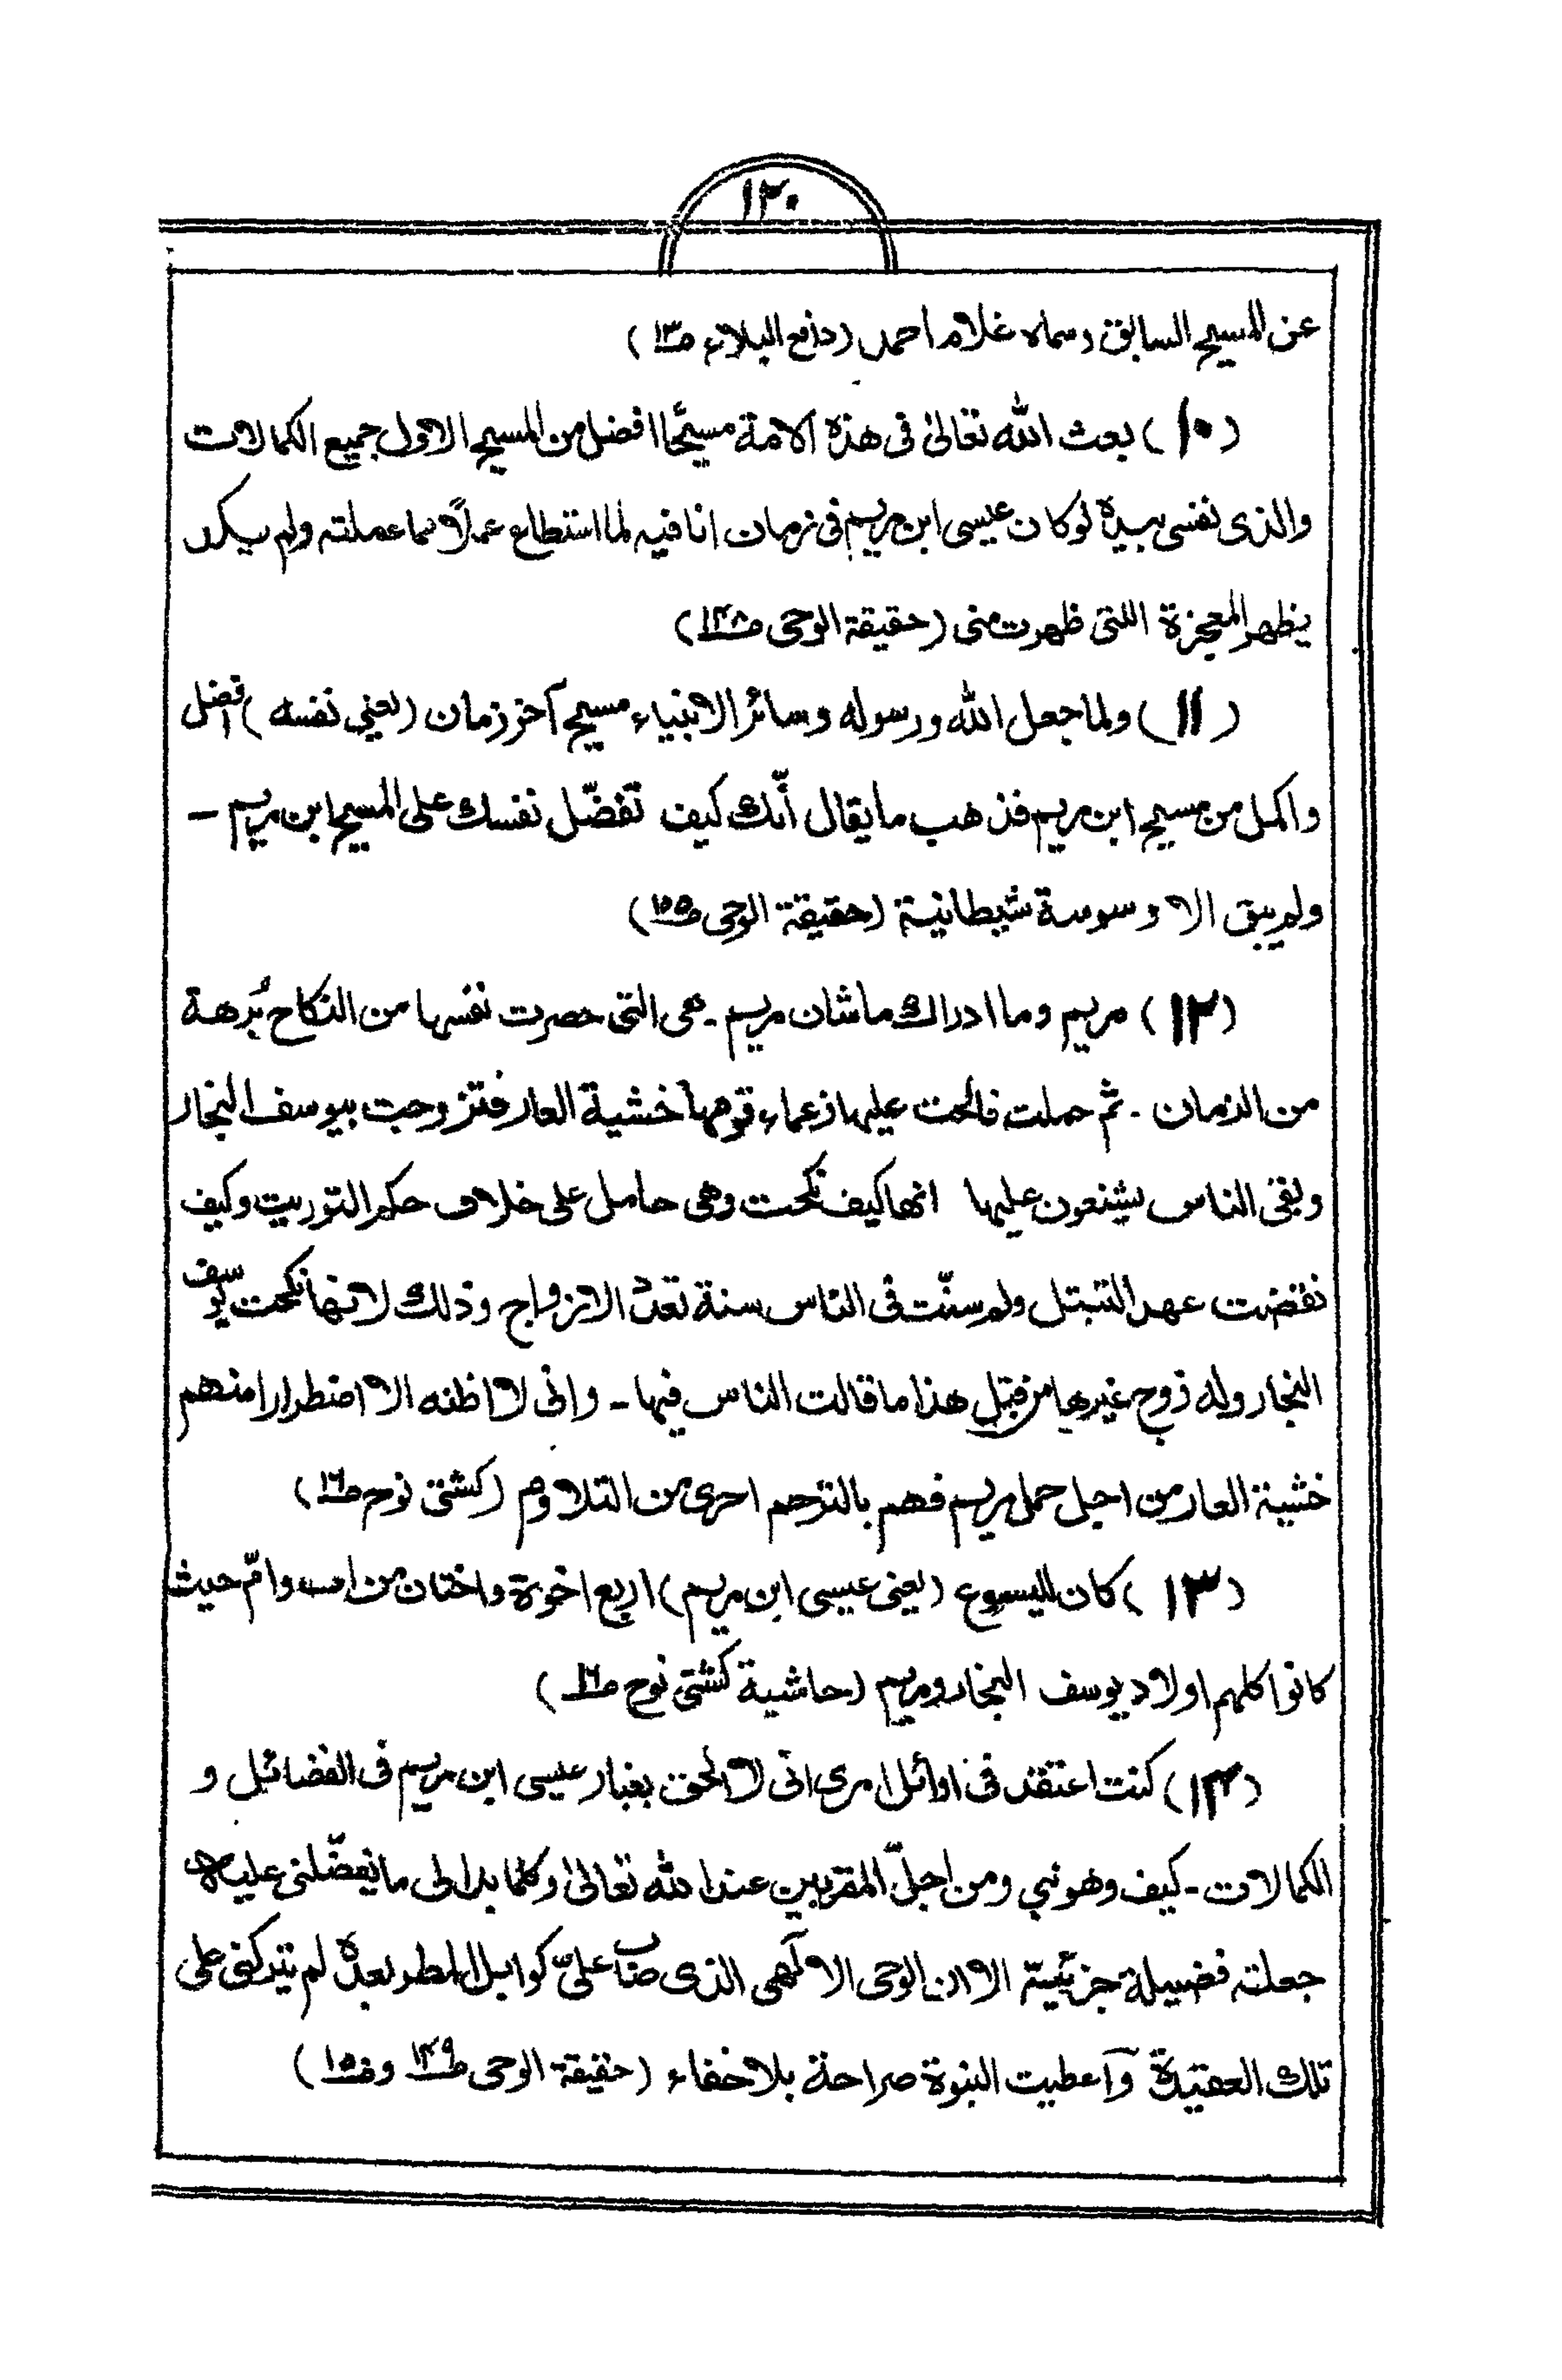 ١٣٠
عن المسيح السابق وسماه غلام احمد (دافع البلاء ص١٣)
(١٠) بعث الله تعالىٰ فى هذه الامة مسيحًا افضل من المسيح الاول جميع الكمالات
والذى نفسى بيده لوكان عيسى ابن مريم فى زمان انا فيه لما استطاع عملًا مما عملته ولم يكد
يظهر المعجزة اللتى ظهرت منى (حقيقة الوحى ص١٤٨)
(١١) ولما جعل الله ورسوله وسائر الانبياء مسيح آخر زمان (يعني نفسه) افضل
واكمل من مسيح ابن مريم فذهب ما يقال أنّك كيف تفضّل نفسك على المسيح ابن مريم -
ولم يبق الا وسوسة شيطانية (حقيقة الوحى ص١٥٥)
(١٢) مريم وما ادراك ما شان مريم - هى التى حصرت نفسها من النكاح بُرهة
من الزمان - ثم حملت فالحت عليها زعماء قومها خشية العار فتزوجت بيوسف النجار
وبقى الناس يشنعون عليها انها كيف نكحت وهى حامل على خلاف حكم التوريت وكيف
نقضت عهد التبتل ولم سنّت فى الناس سنة تعدّد الازواج وذلك لانها نكحت يوسف
النجار وله زوج غيرها من قبل هذا ما قالت الناس فيها - وانى لا اظنه الا اضطرارا منهم
خشية العار من اجل حمل مريم فهم بالترحم احرى من التلاوم (كشتى نوح ص١٦)
(١٣) كان لليسوع (يعنى عيسى ابن مريم) اربع اخوة واختان من اب وامّ حيث
كانوا كلهم اولاد يوسف النجار ومريم (حاشية كشتى نوح ص١٦)
(١٤) كنت اعتقد فى اوائل امرى انى لا الحق بغبار عيسى ابن مريم فى الفضائل و
الكمالات - كيف وهو نبي ومن اجلّ المقربين عند الله تعالىٰ وكلما بدا لى ما يفضّلنى عليه
جعلته فضيلة جزئيّة الا ان الوحى الالٓهى الذى صاب علىّ كوابل المطر بعده لم يتركنى على
تلك العقيدة وأعطيت النبوة صراحة بلا خفاء (حقيقة الوحى ص١٤٩ وص١٥٠)